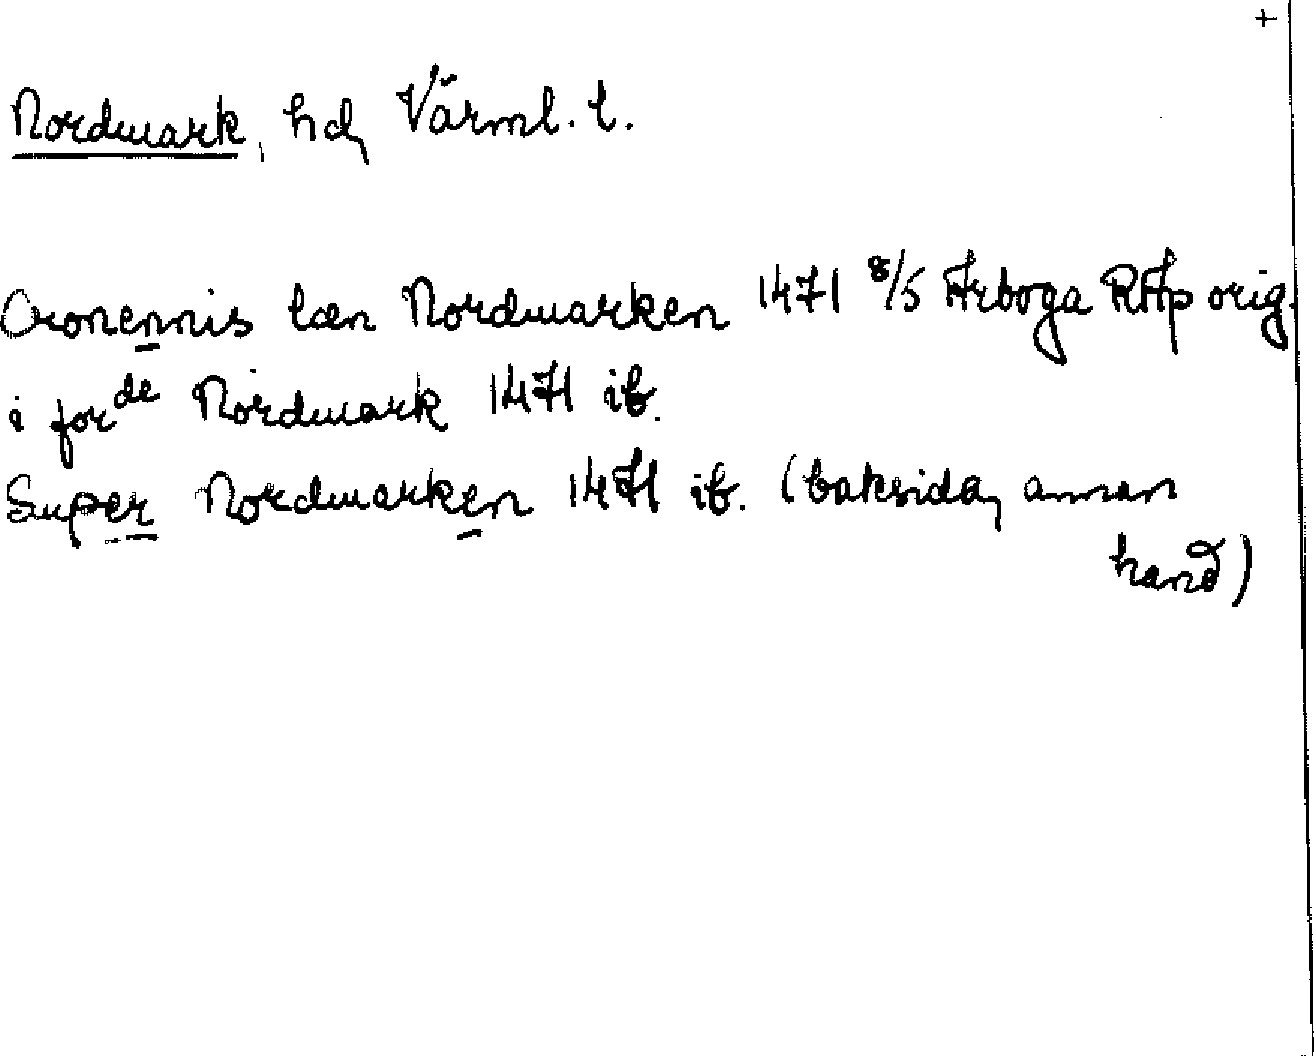 +
Nordmark, hd, Värml. l.
Cronennis læn Nordmarken 1471 8/5 Arboga RAp orig.
i for de Nordmark 1471 ib.
Super Nordmarken 1471 ib. (baksida, annan
hand)